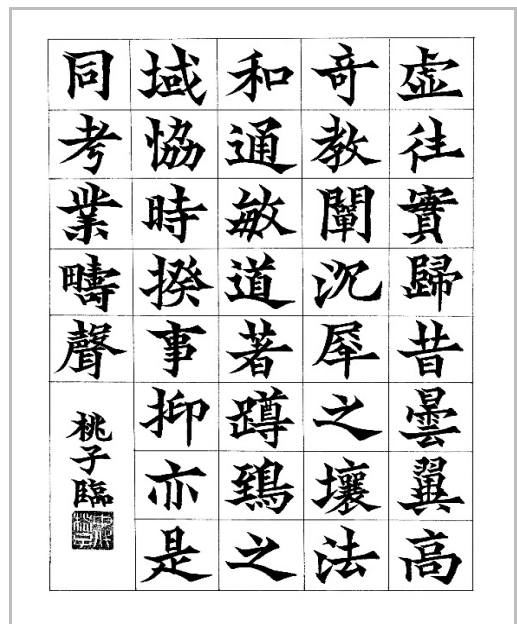 虚徃實歸昔曇翼高
竒教闡沉犀之壤法
和通敏道著蹲鵄之
域恊時揆事抑亦是
同考業疇聲
桃子臨